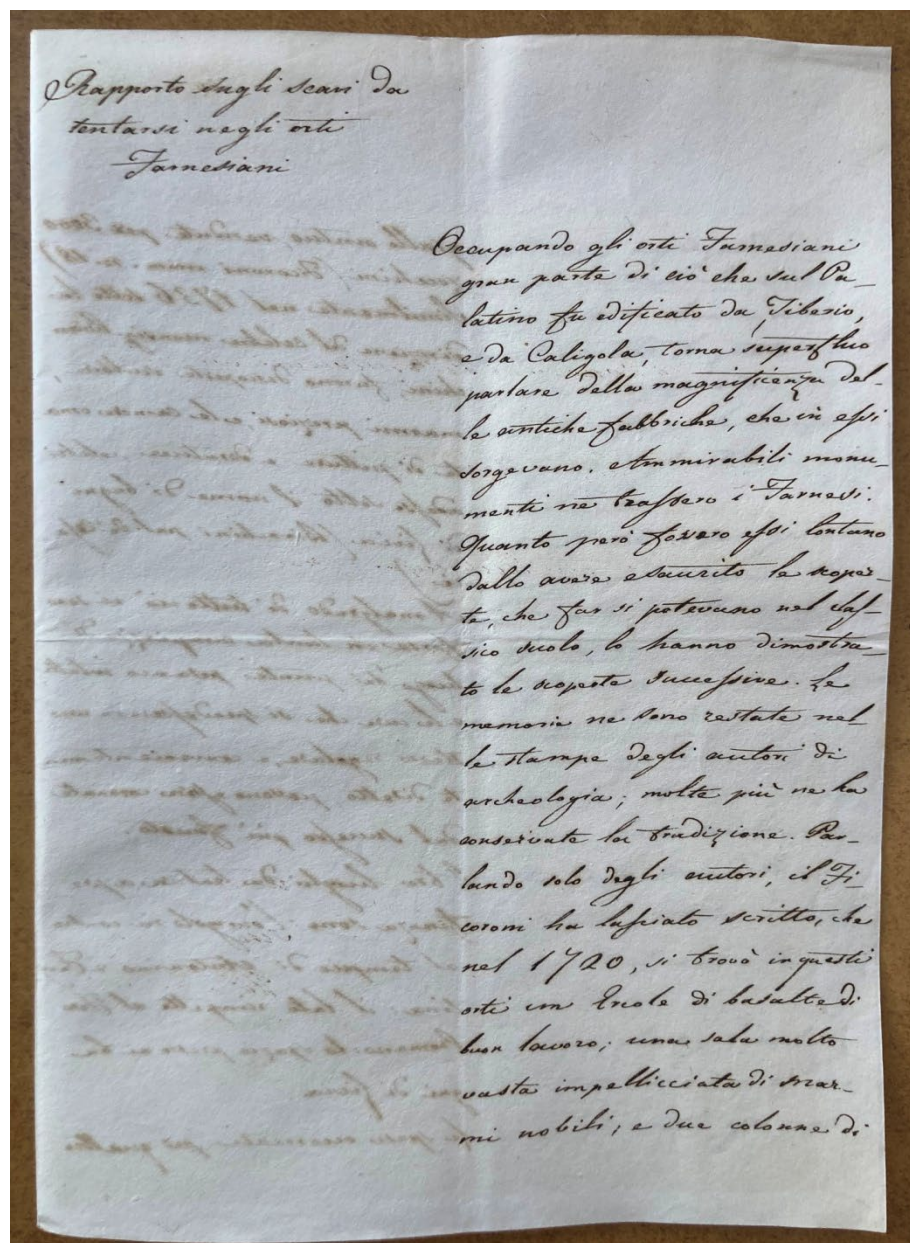 Rapporto sugli scavi da
tentarsi negli orti
Farnesiani
Occupando gli orti Farnesiani
gran parte di ciò che sul Pa_
latino fu edificato da Tiberio,
e da Caligola, torna superfluo
parlare della magnificenza del-
le antiche fabbriche, che in essi
sorgevano. Ammirabili monu_
menti ne trassero i Farnesi.
Quanto però fossero essi lontano
dallo avere esaurito le scoper-
te, che far si potevano nel clas_
sico suolo, lo hanno dimostra_
to le scoperte successive. Le
memorie ne sono restate nel_
le stampe degli autori di
archeologia; molte più ne ha
conservate la tradizione. Par_
lando solo degli autori, il Fi_
coroni ha lasciato scritto, che
nel 1720, si trovò in questi
orti un Ercole di basalte di
buon lavoro; una sala molto
vasta impellicciata di mar_
mi nobili; e due colonne di